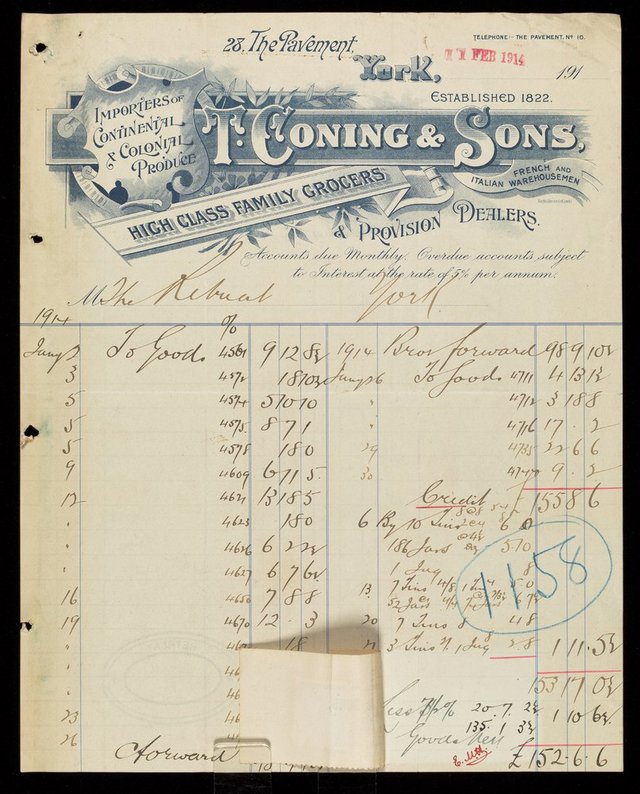 28, The Pavement,
TELEPHONE:- THE PAVEMENT, No 10.
York,
11 FEB 1914
191
ESTABLISHED 1822.
IMPORTERS OF
CONTINENTAL
& COLONIAL
PRODUCE
T. CONING & SONS,
FRENCH AND
ITALIAN WAREHOUSEMEN
HIGH CLASS FAMILY GROCERS
& PROVISION DEALERS.
Accounts due Monthly. Overdue accounts subject
to Interest at the rate of 5% per annum.
M The Retreat York
1914
To Goods 4561 9 12 8½
3 4572 18 10½
5 4574 5 10 10
5 4575 8 7 1
5 4578 18 0
9 4609 6 11 5
12 4621 13 18 5
" 4623 18 0
" 4626 6 2 2½
" 4627 6 7 6½
16 4650 7 8 8
19 4670 12 . 3
23
26
Forward
1914 Brot forward 98 9 10½
To Goods 4711 4 13 1½
" 4712 3 18 8
" 4716 17 . 2
29 4735 22 6 6
30 9 . 2
Credit 155 8 6
6 By 10 Tins
186 Jars
1 Jug 8
13 7 Tins
52 Jars
20 7 Tins 8 4 8
3 Tins 1 Jug 2 8 1 11 5½
1158
153 17 0½
Less 20 . 7 . 2½ 1 10 6½
Goods Nett 135 . 1 3½
£152 . 6 . 6